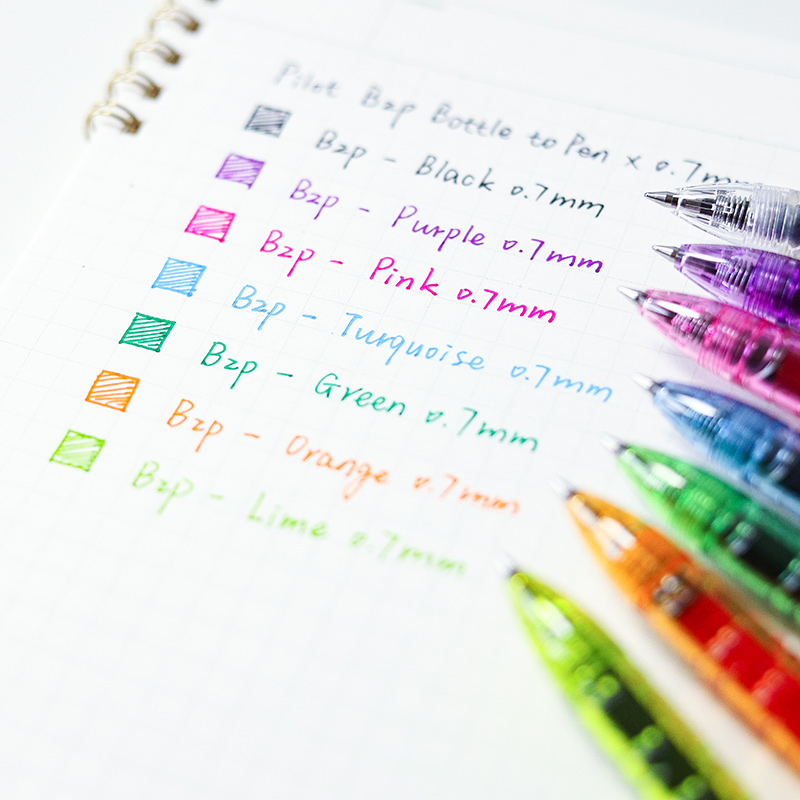 Pilot B2p Bottle to Pen x 0.7mm
B2p - Black 0.7mm
B2p - Purple 0.7mm
B2p - Pink 0.7mm
B2p - Turquoise 0.7mm
B2p - Green 0.7mm
B2p - Orange 0.7mm
B2p - Lime 0.7mm